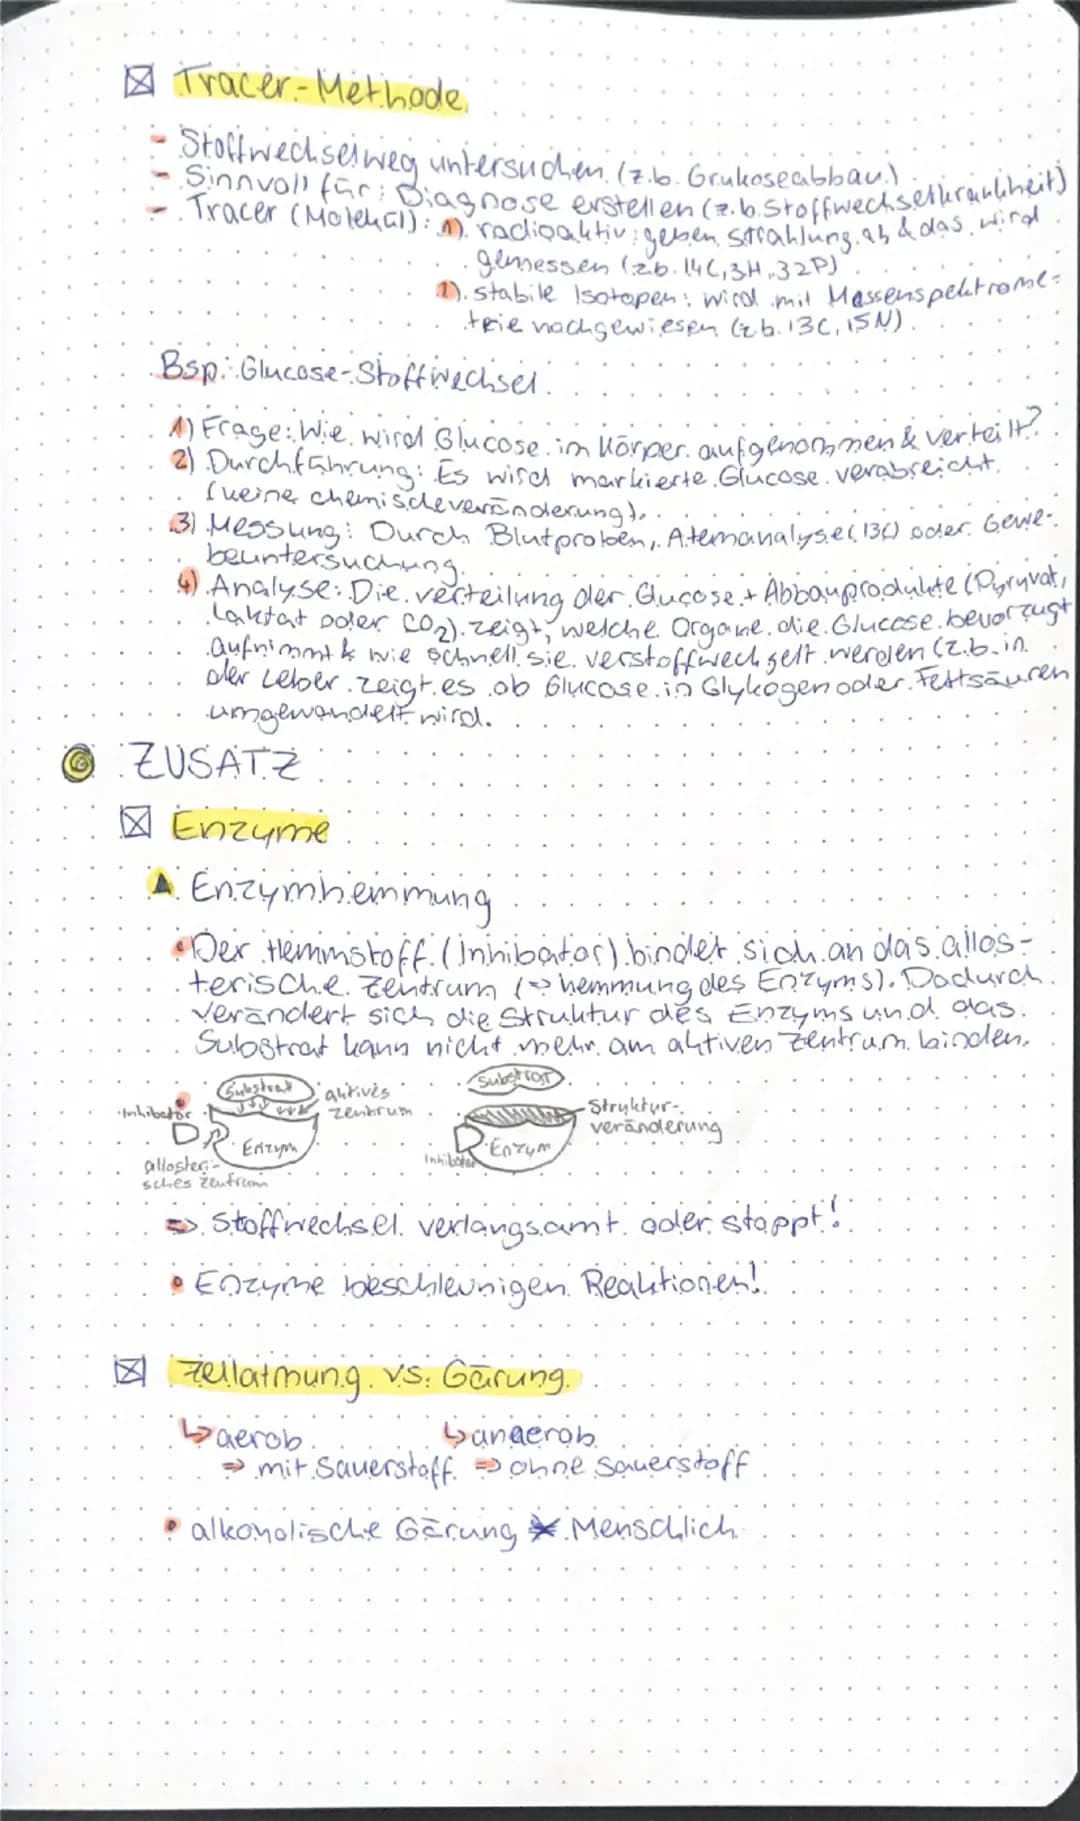 Tracer-Methode
- Stoffwechselweg untersuchen (z.b. Grukoseabbau)
- Sinnvoll für: Diagnose erstellen (z.b. Stoffwechselkrankheit)
- Tracer (Molekül): 1) radioaktiv: geben Strahlung ab & das wird
gemessen (z.b. 14C, 3H, 32P)
2) stabile Isotopen: wird mit Massenspektrome-
trie nachgewiesen (z.b. 13C, 15N)
Bsp.: Glucose-Stoffwechsel
1) Frage: Wie wird Glucose im Körper aufgenommen & verteilt?
2) Durchführung: Es wird markierte Glucose verabreicht
(keine chemische veränderung).
3) Messung: Durch Blutproben, Atemanalyse (13C) oder Gewe-
beuntersuchung.
4) Analyse: Die verteilung der Glucose + Abbauprodukte (Pyruvat,
Laktat oder CO2) zeigt, welche Organe die Glucose bevorzugt
aufnimmt & wie schnell sie verstoffwechselt werden (z.b. in
der Leber zeigt es ob Glucose in Glykogen oder Fettsäuren
umgewandelt wird.
ZUSATZ
Enzyme
Enzymhemmung
• Der Hemmstoff (Inhibator) bindet sich an das allos-
terische Zentrum (=> hemmung des Enzyms). Dadurch
verändert sich die Struktur des Enzyms und das
Substrat kann nicht mehr am aktiven Zentrum binden.
Substrat
aktives
Zentrum
Inhibator
Enzym
allosteri-
sches Zentrum
Substrat
Struktur-
veränderung
Enzym
Inhibator
=> Stoffwechsel verlangsamt oder stoppt!
• Enzyme beschleunigen Reaktionen!
Zellatmung vs. Gärung
↳ aerob ↳ anaerob
=> mit Sauerstoff => ohne Sauerstoff
• alkoholische Gärung Menschlich